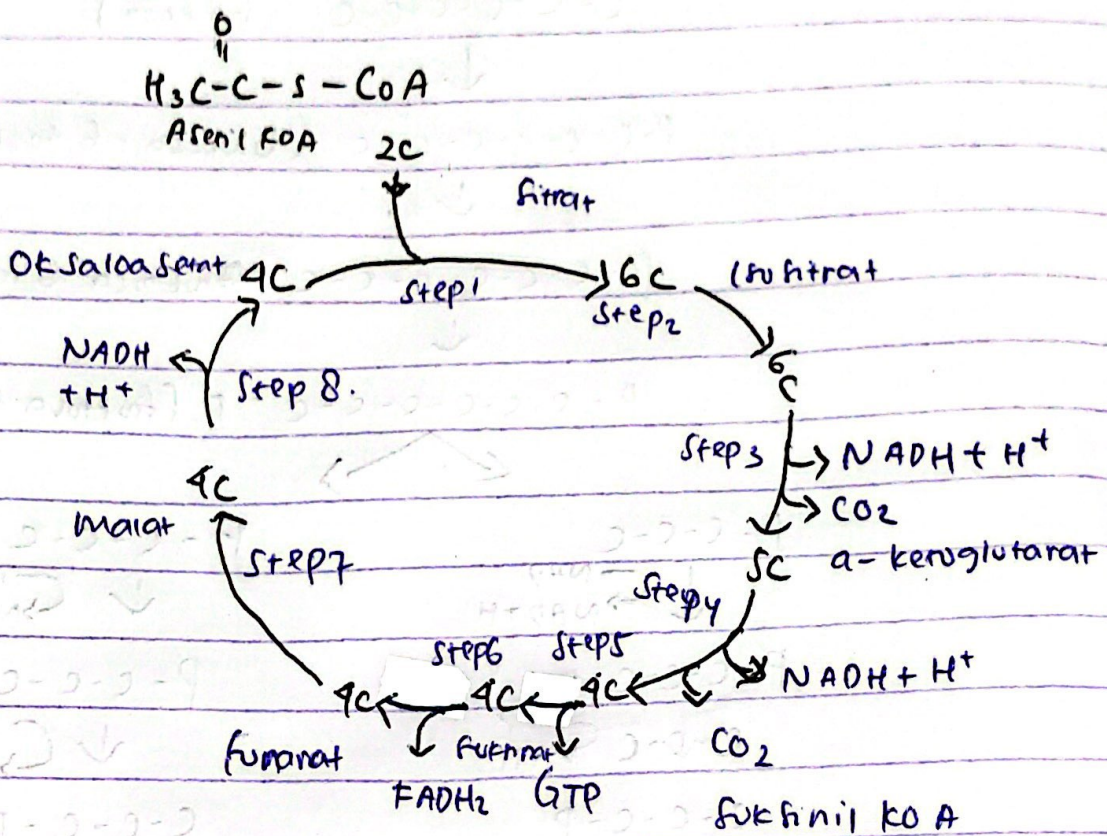 O
||
H3C-C-S-CoA
Asetil KOA
2C
Sitrat
Oksaloasetat 4C
Step1
6C
Isositrat
Step2
6
C
NADH
+H+
Step 8.
Step3
NADH + H+
CO2
4C
Malat
Step7
5C
a-ketoglutarat
Step4
Step6
Step5
NADH + H+
4C
4C
4C
CO2
fumarat
Suksinat
FADH2
GTP
Suksinil KOA